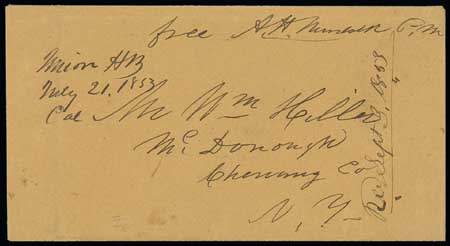 free A. H. Murdock P.M
Union H B
July 21. 1853
Cal
Mr Wm Hiller
Mc Donough
Chenung Co
N. Y.
Rec Sept 9, 1853